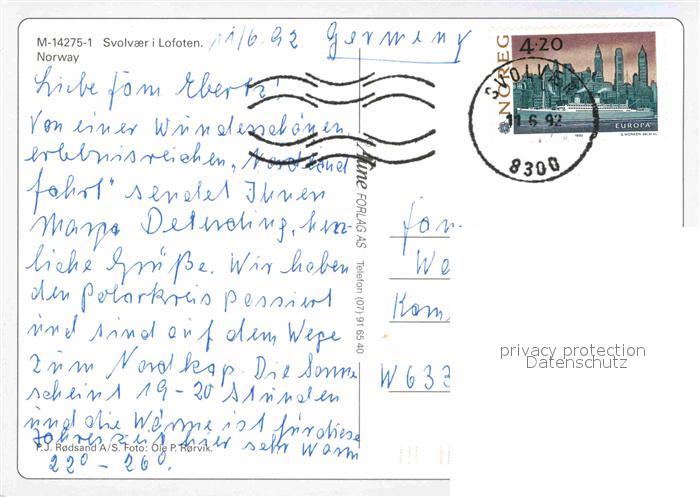 M-14275-1 Svolvær i Lofoten.
Norway
11/6.92 Germeny
Liebe fam Ebertz!
Von einer Wunderschönen
erlebnisreichen „Nordland
fahrt" sendet Ihnen
Deterding, herz-
liche Grüße. Wir haben
den Polarkreis passiert
und sind auf dem Wege
zum Nordkap. Die Sonne
scheint 19-20 Stunden
und die Wärme ist für diese
Jahreszeit hier sehr warm
22° - 26°.
F.J. Rødsand A/S. Foto: Ole P. Rørvik.
Aune FORLAG AS Telefon (07) 91 65 40
NOREG
4.20
EUROPA
1992
SVOLVÆR
11.6.92
8300
fam.
We
Kam
W 633
privacy protection
Datenschutz